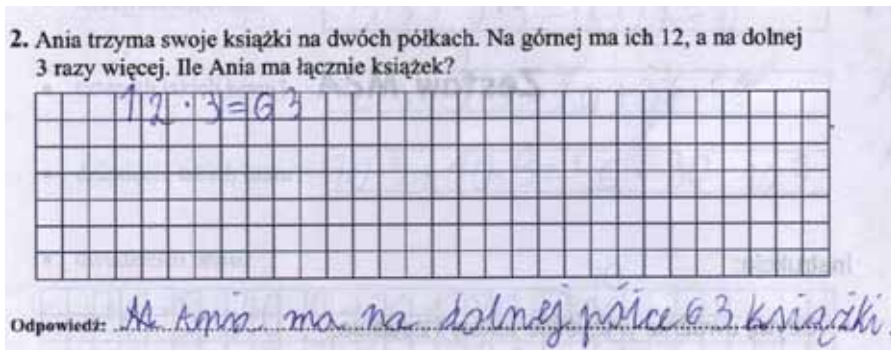 2. Ania trzyma swoje książki na dwóch półkach. Na górnej ma ich 12, a na dolnej
3 razy więcej. Ile Ania ma łącznie książek?
12 · 3 = 63
Odpowiedź: Ania ma na dolnej półce 63 książki.